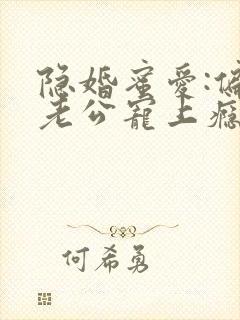 隐婚蜜爱:偏
老公宠上瘾
何希勇